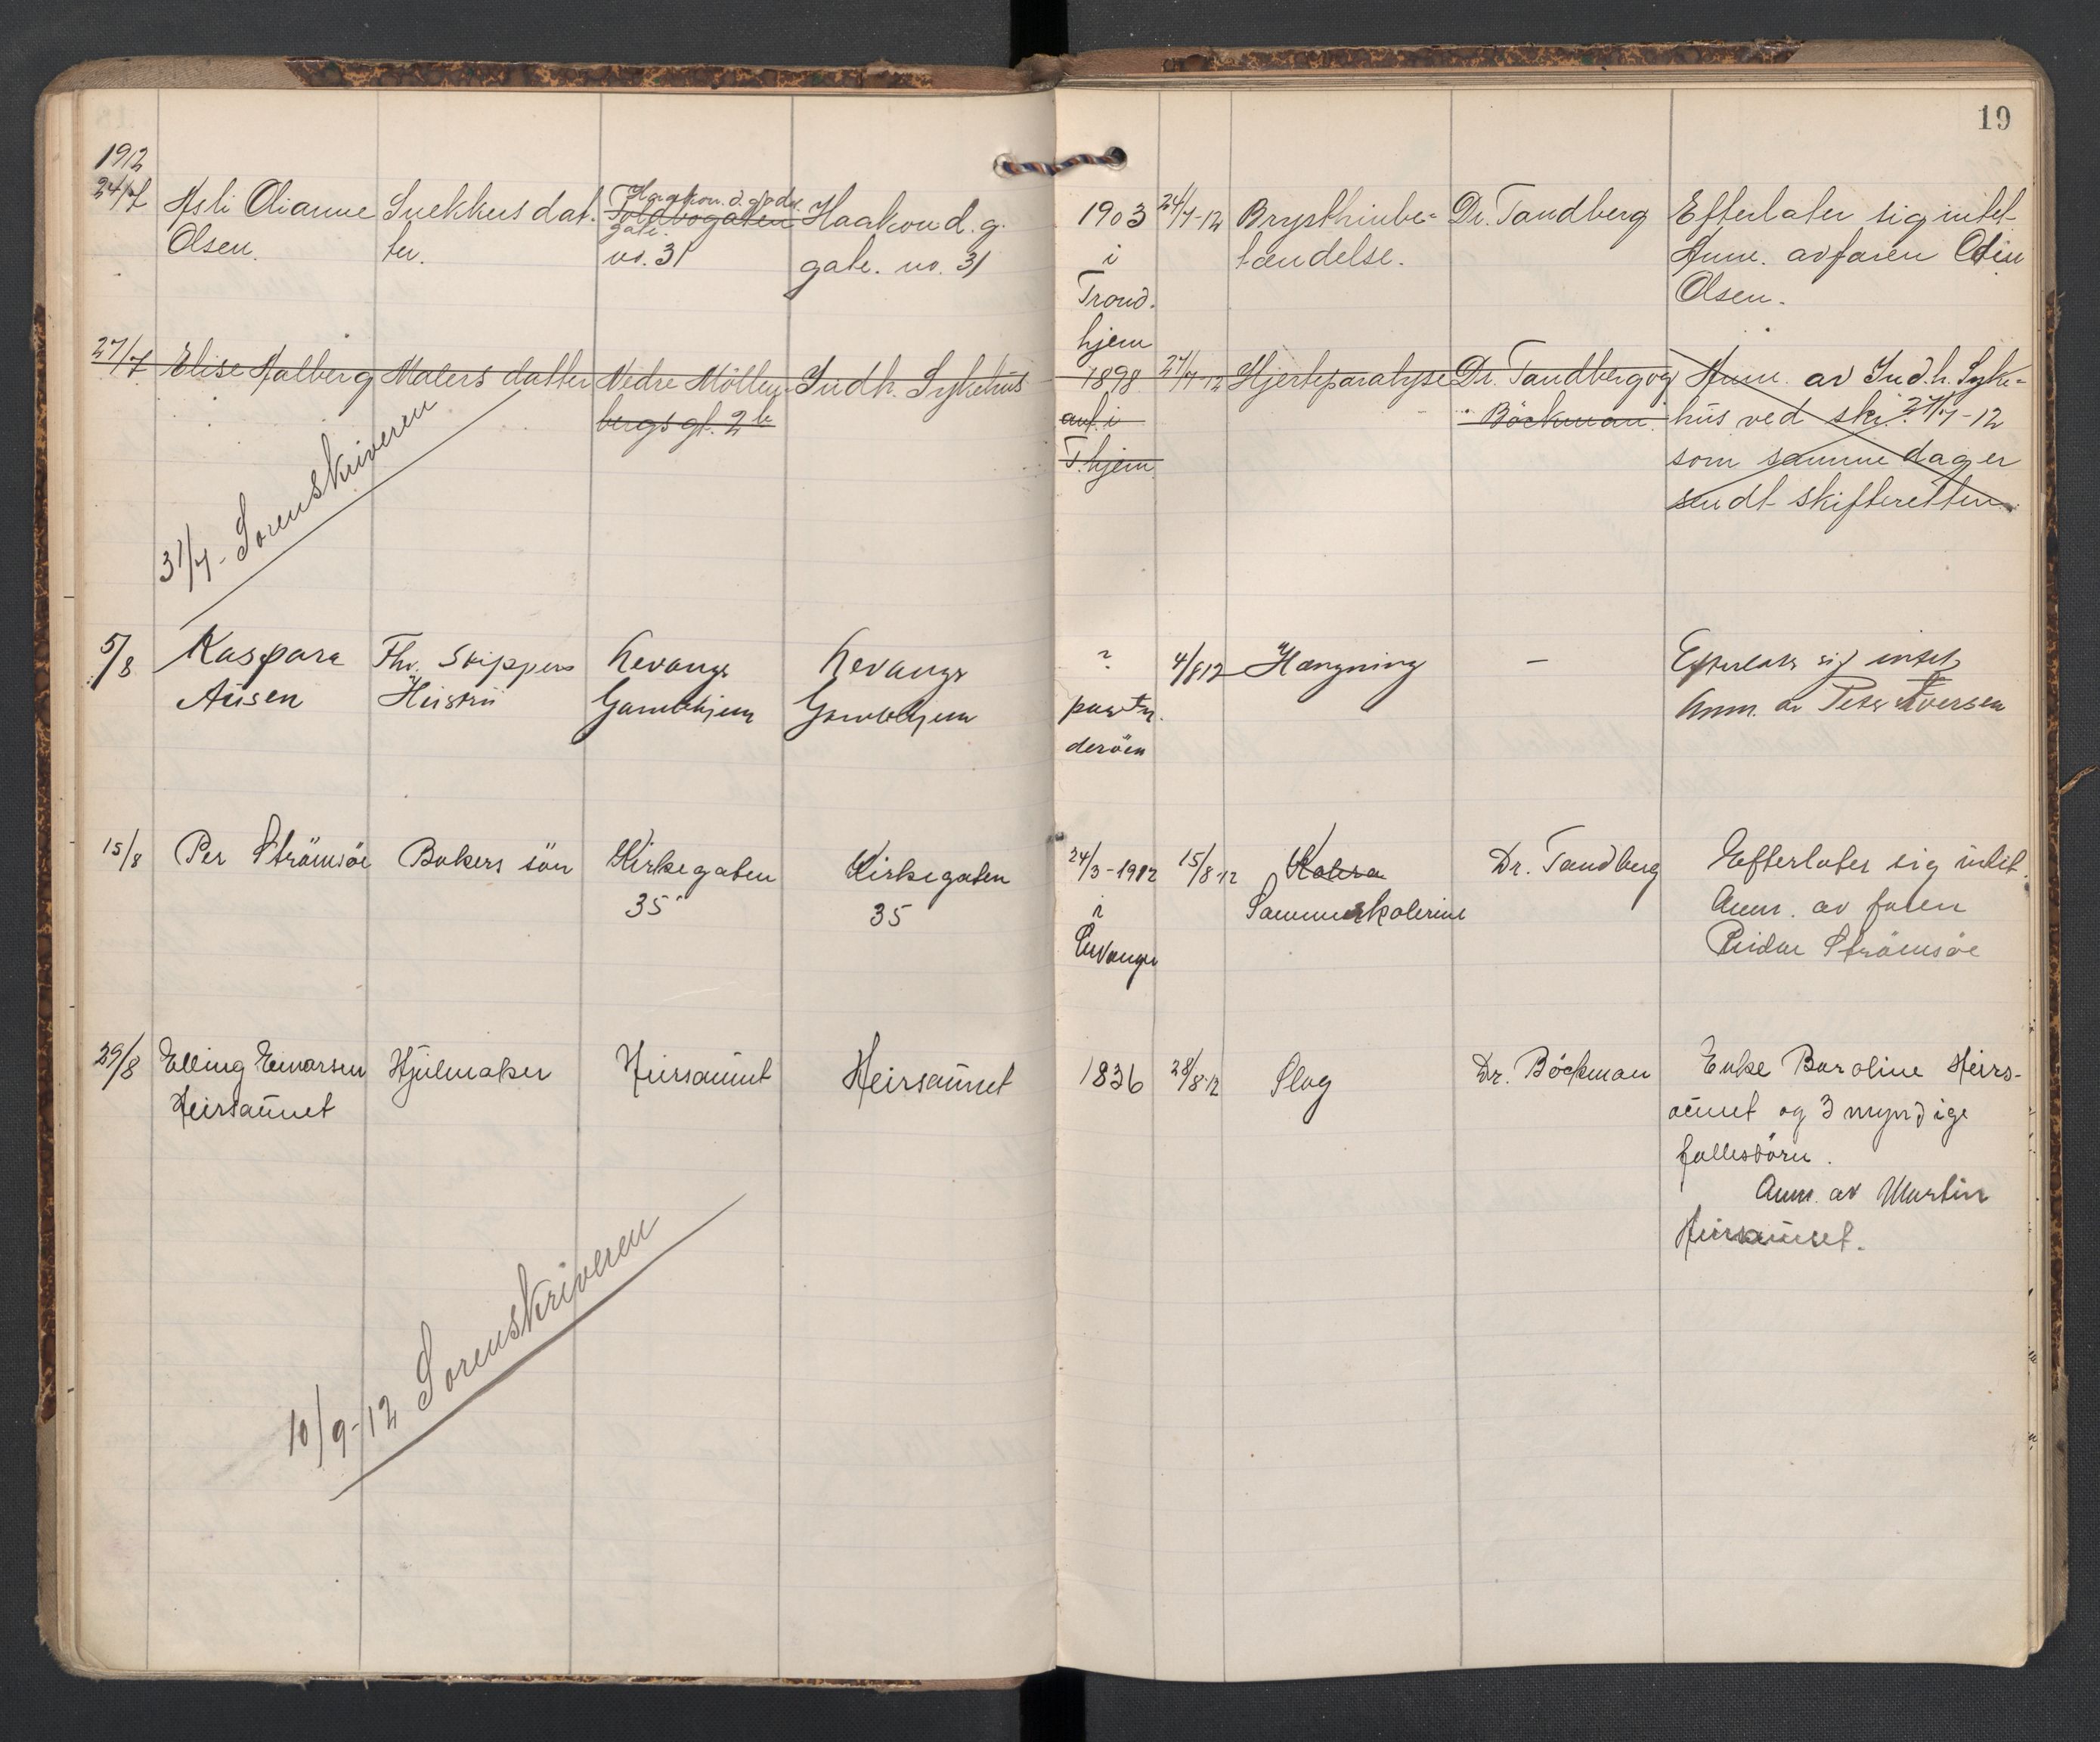 19
1912
24/7 Asli Olianne Snekkers dat- Haakon d. godes Haakon d. g. 1903 24/7-12 Brysthinbe- Dr. Tandberg Efterlater sig intet
Olsen. ter. Toldbogaten gate. no. 31 gate. no. 31 i tændelse. Anm. av faren Odin
Trond- Olsen.
hjem
27/7 Elise Aalberg Malers datter Nedre Möllen- Indh. Sykehus 1898 27/7-12 Hjerteparalyse Dr. Tandberg og Anm. av Indh. Syke-
bergs gt. 2b i Böckman hus ved skr. 27/7-12
T.hjem som samme dag er
sendt skifteretten.
31/7- Sorenskriveren
5/8 Kaspara Fhv. Skippers Levanger Levanger ? 4/8 12 Hængning — Efterlater sig intet
Hustru Gamlehjem Gamlehjem paa In- Anm. av Peter Iversen
deröen
15/8 Per Strömsöe Bakers sön Kirkegaten Kirkegaten 24/3-1912 15/8-12 Kolera Dr. Tandberg Efterlater sig intet.
35 35 i Sommerkolerine Anm. av faren
Levanger Reidar Strömsöe
29/8 Elling Einarsen Hjulmaker Heirsaunet Heirsaunet 1836 28/8-12 Slag Dr. Böckman Enke Baroline Heirs-
Heirsaunet aunet og 3 myndige
fællesbörn.
Anm. av Martin
Heirsaunet.
10/9-12 Sorenskriveren